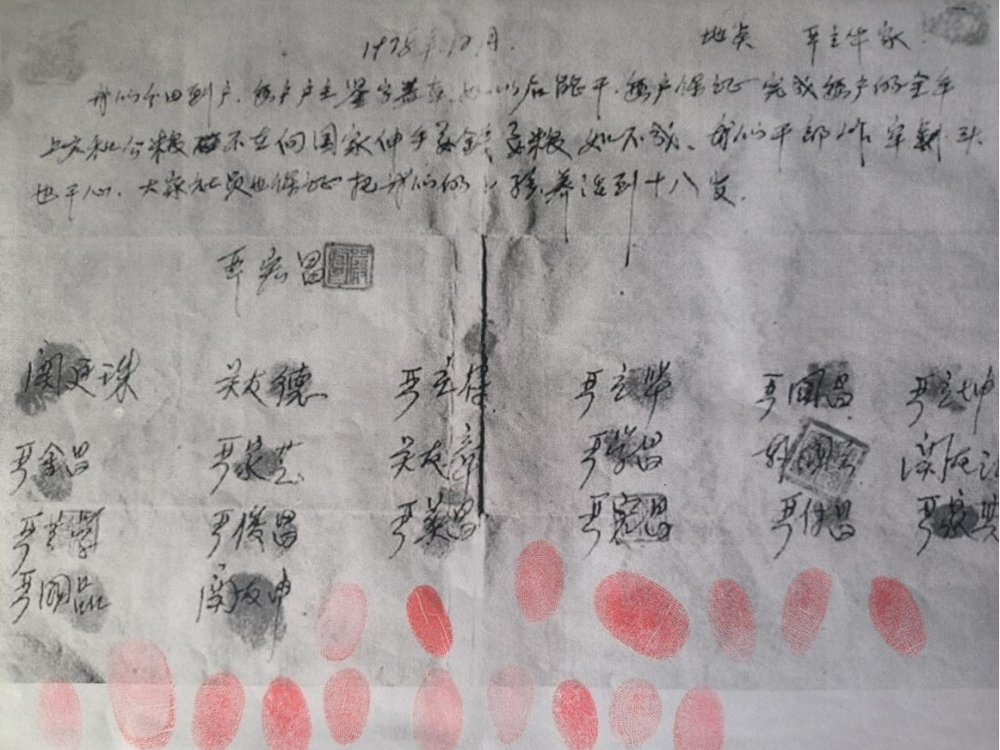 1978年12月. 地点 严立华家.
我们分田到户.每户户主签字盖章.如以后能干.每户保证完成每户的全年
上交和公粮 不在向国家伸手要钱要粮 如不成、我们干部作牢刹头
也干心.大家社员也保证把我们的小孩养活到十八岁.
严宏昌
关廷珠 关友德 严立符 严立华 严国昌 严立坤
严金昌 严家芝 关友章 严学昌 韩国云 关友江
严立学 严俊昌 严美昌 严宏昌 严付昌 严家其
严国品 关友申